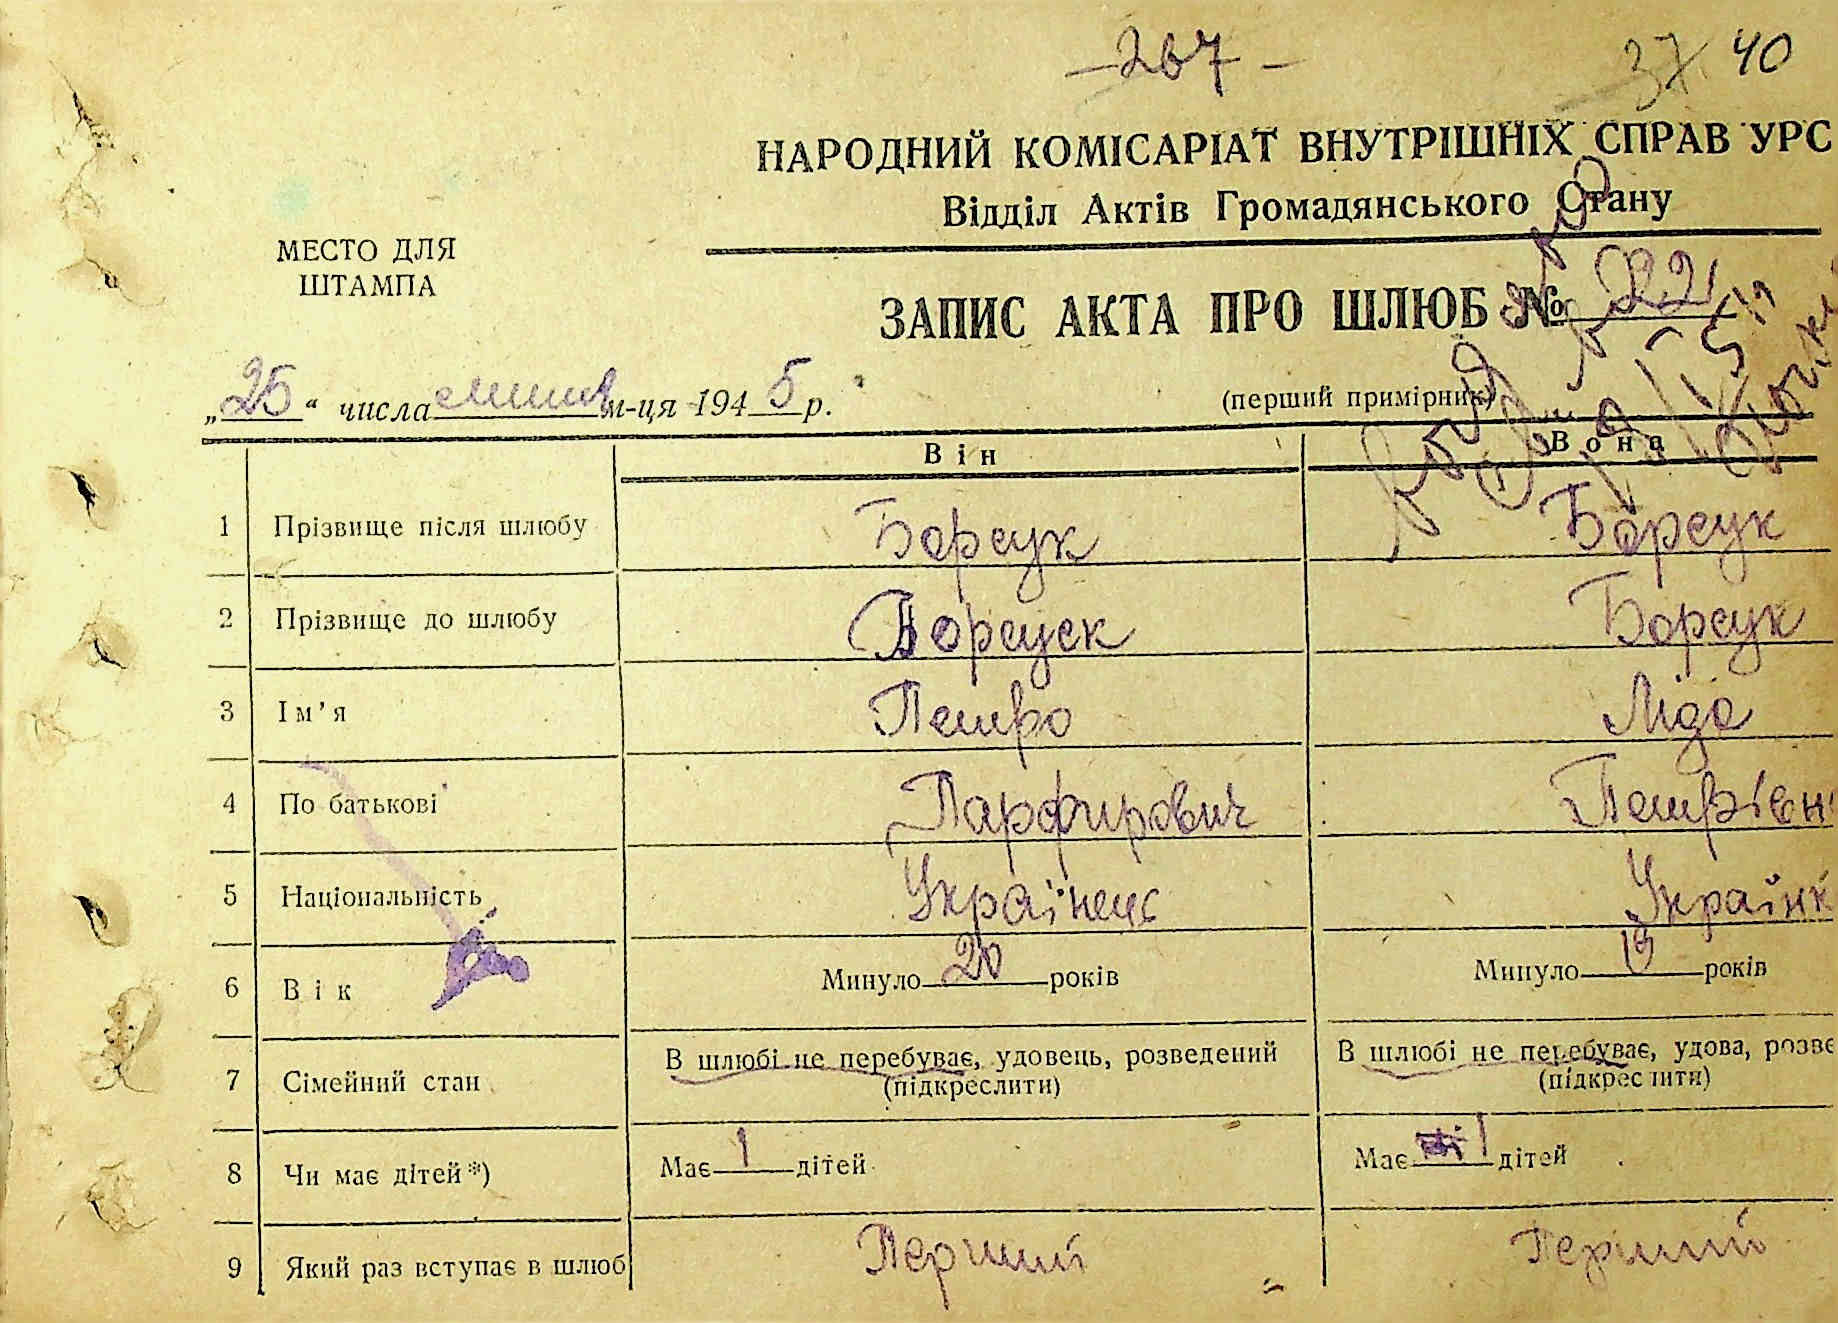 — 267 —
37 40
НАРОДНИЙ КОМІСАРІАТ ВНУТРІШНІХ СПРАВ УРС
Відділ Актів Громадянського Стану
МЕСТО ДЛЯ
ШТАМПА
ЗАПИС АКТА ПРО ШЛЮБ № 221
„25“ числа м-ця 1945 р.
(перший примірник)
Він Вона
1 Прізвище після шлюбу Борсук Борсук
2 Прізвище до шлюбу Борсук Борсук
3 Ім'я Петро Ліда
4 По батькові Парфирович Петрівн
5 Національність Українець Українк
6 Вік Минуло 20 років Минуло 19 років
7 Сімейний стан В шлюбі не перебуває, удовець, розведений В шлюбі не перебуває, удова, розве
(підкреслити) (підкреслити)
8 Чи має дітей*) Має 1 дітей Має 1 дітей
9 Який раз вступає в шлюб Перший Перший